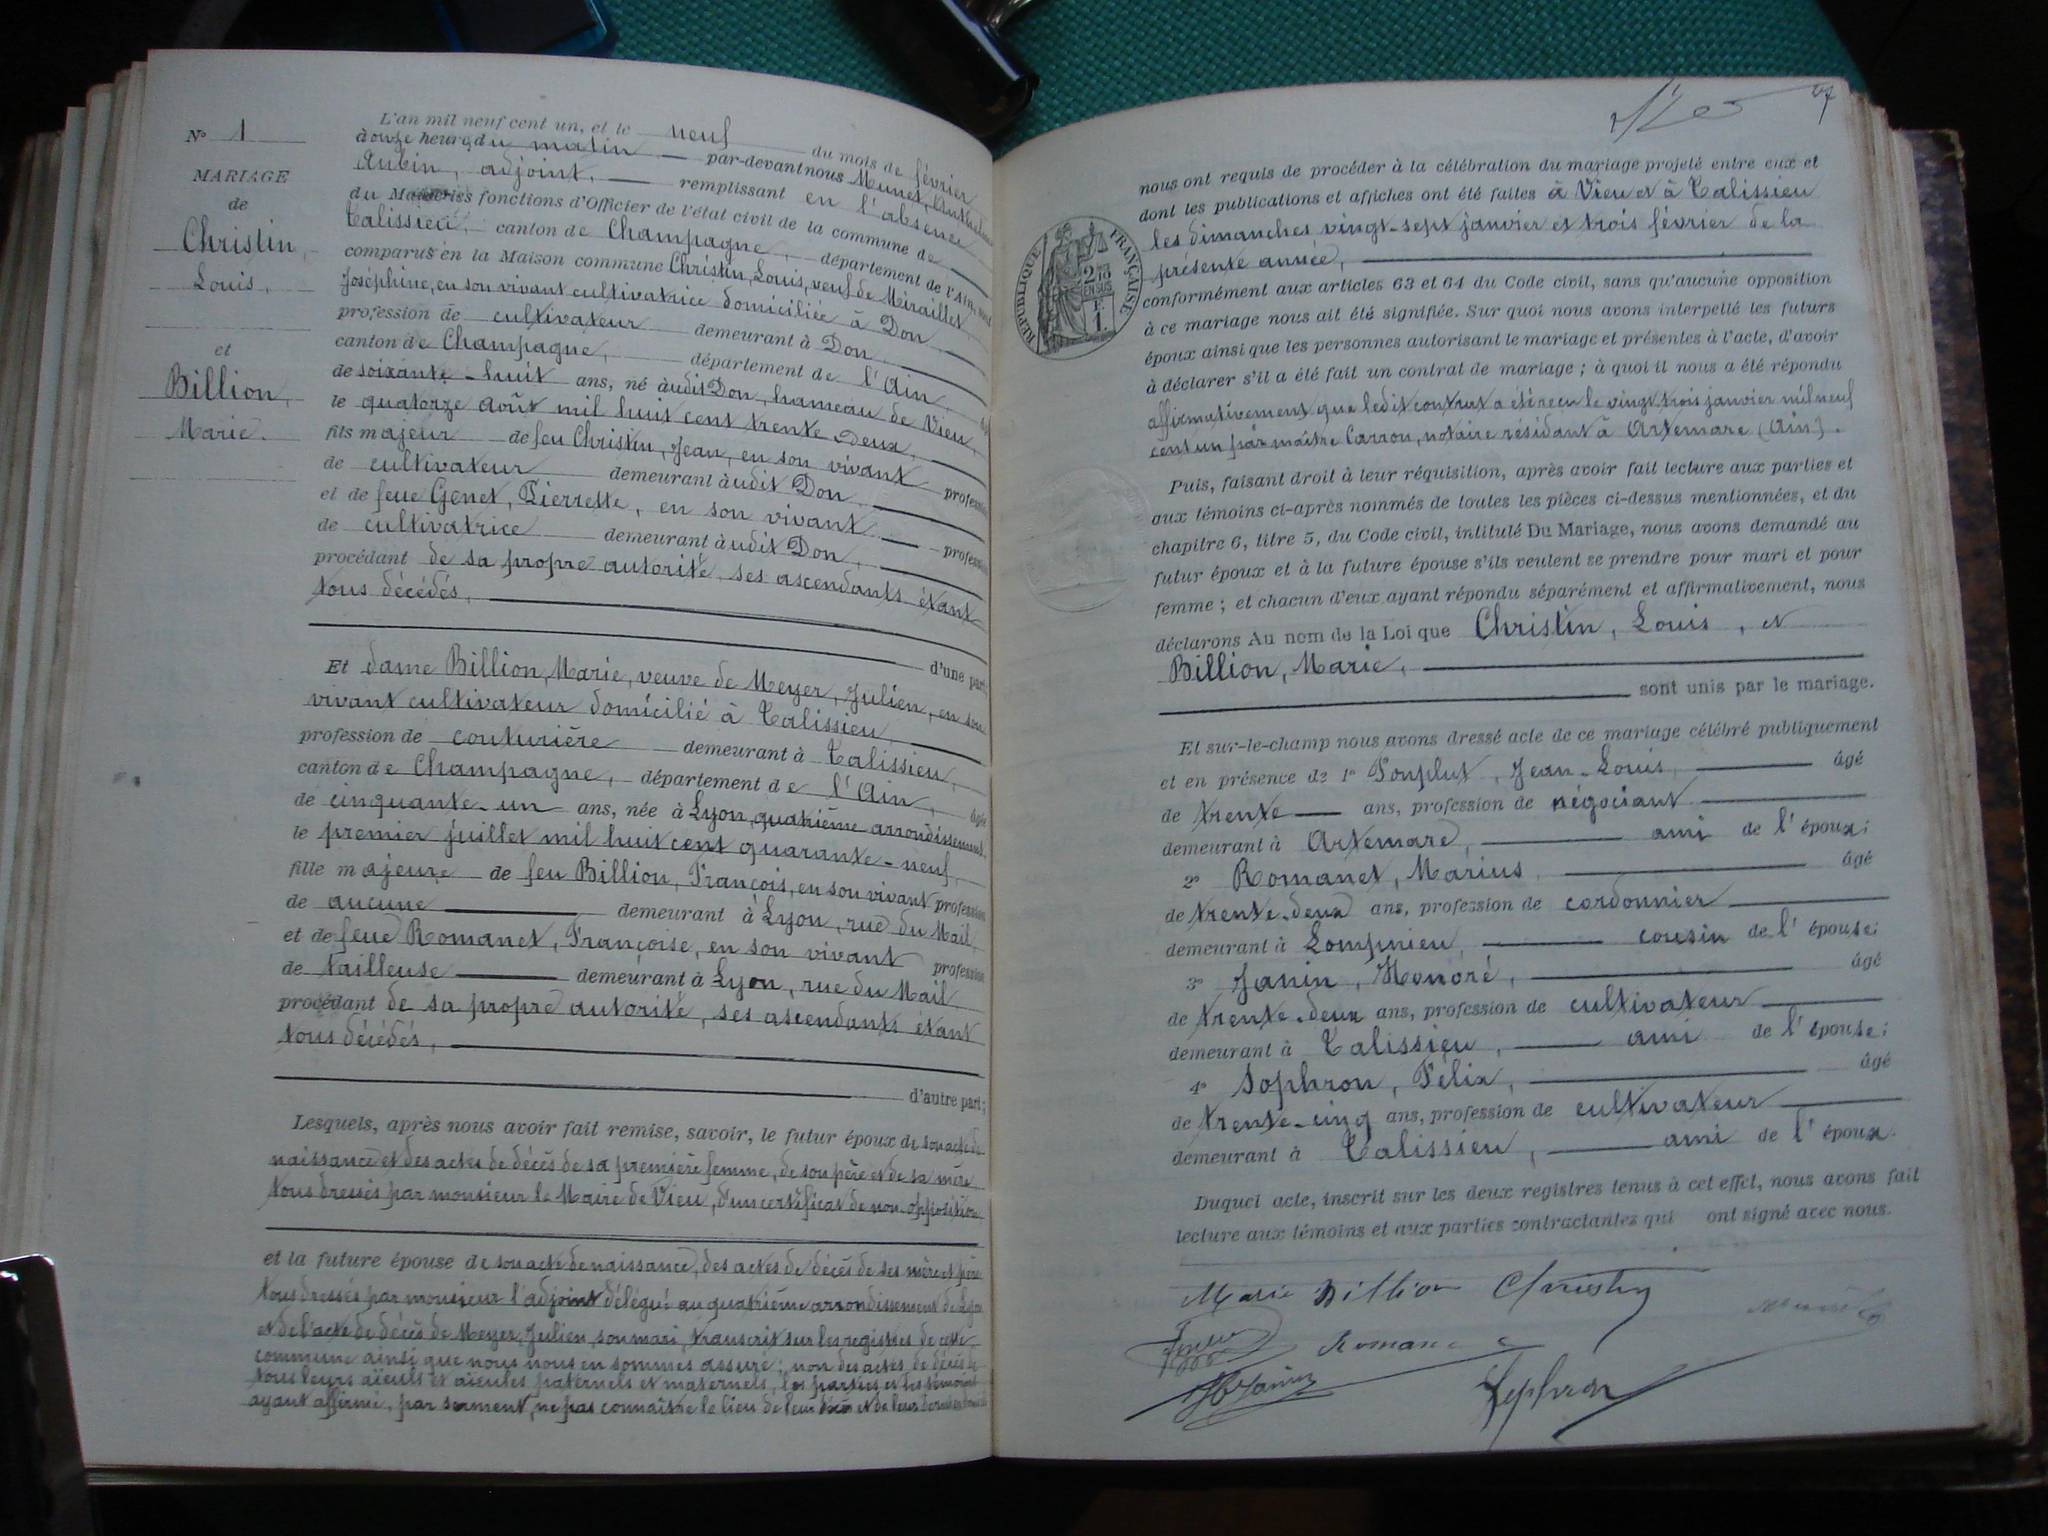 N° 1
MARIAGE
de
Christin,
Louis,
et
Billion,
Marie.
L'an mil neuf cent un, et le neuf du mois de février
à onze heures du matin par-devant nous Munet, Anthelme
Aubin, adjoint, remplissant en l'absence
du Maire les fonctions d'Officier de l'état civil de la commune de
Talissieu, canton de Champagne, département de l'Ain, sont
comparus en la Maison commune Christin, Louis, veuf de Miraillet
Joséphine, en son vivant cultivatrice domiciliée à Don,
profession de cultivateur demeurant à Don,
canton de Champagne, département de l'Ain âgé
de soixante-huit ans, né àudit Don, hameau de Vieu,
le quatorze août mil huit cent trente Deux,
fils majeur de feu Christin, Jean, en son vivant profession
de cultivateur demeurant àudit Don,
et de feue Genet, Pierrette, en son vivant profession
de cultivatrice demeurant àudit Don,
procédant de sa propre autorité, ses ascendants étant
tous décédés,
d'une part;
Et dame Billion, Marie, veuve de Meyer, Julien, en son
vivant cultivateur domicilié à Talissieu,
profession de couturière demeurant à Talissieu,
canton de Champagne, département de l'Ain, âgée
de cinquante-un ans, née à Lyon, quatrième arrondissement,
le premier juillet mil huit cent quarante-neuf,
fille majeure de feu Billion, François, en son vivant profession
de aucune demeurant à Lyon, rue du Mail,
et de feue Romanet, Françoise, en son vivant profession
de tailleuse demeurant à Lyon, rue du Mail
procédant de sa propre autorité, ses ascendants étant
tous décédés,
d'autre part;
Lesquels, après nous avoir fait remise, savoir, le futur époux de son acte de
naissance et des actes de décès de sa première femme, de son père et de sa mère
tous dressés par monsieur le Maire de Vieu, d'un certificat de non-opposition
et la future épouse de son acte de naissance, des actes de décès de ses mère et père
tous dressés par monsieur l'adjoint délégué au quatrième arrondissement de Lyon
et de l'acte de décès de Meyer, Julien, son mari, transcrit sur les registres de cette
commune ainsi que nous nous en sommes assuré; non des actes de décès de
tous leurs aïeuls et aïeules paternels et maternels, les parties et les témoins
ayant affirmé, par serment, ne pas connaître le lieu de leur décès et de leur dernier
47
nous ont requis de procéder à la célébration du mariage projeté entre eux et
dont les publications et affiches ont été faites à Vieu et à Talissieu
les dimanches vingt-sept janvier et trois février de la
présente année,
RÉPUBLIQUE FRANÇAISE
2/10 EN SUS
F. 1.
conformément aux articles 63 et 64 du Code civil, sans qu'aucune opposition
à ce mariage nous ait été signifiée. Sur quoi nous avons interpellé les futurs
époux ainsi que les personnes autorisant le mariage et présentes à l'acte, d'avoir
à déclarer s'il a été fait un contrat de mariage; à quoi il nous a été répondu
affirmativement que ledit contrat a été reçu le vingt trois janvier mil neuf
cent un par maître Carron, notaire résidant à Artemare (Ain).
Puis, faisant droit à leur réquisition, après avoir fait lecture aux parties et
aux témoins ci-après nommés de toutes les pièces ci-dessus mentionnées, et du
chapitre 6, titre 5, du Code civil, intitulé Du Mariage, nous avons demandé au
futur époux et à la future épouse s'ils veulent se prendre pour mari et pour
femme; et chacun d'eux ayant répondu séparément et affirmativement, nous
déclarons Au nom de la Loi que Christin, Louis, et
Billion, Marie,
sont unis par le mariage.
Et sur-le-champ nous avons dressé acte de ce mariage célébré publiquement
et en présence de 1° Jean-Louis, âgé
de trente ans, profession de négociant
demeurant à Artemare, ami de l'époux;
2° Romanet, Marius, âgé
de trente-deux ans, profession de cordonnier
demeurant à Lompnieu, cousin de l'épouse;
3° Janin, Honoré, âgé
de trente-deux ans, profession de cultivateur
demeurant à Talissieu, ami de l'épouse;
4° Sophron, Félix, âgé
de trente-cinq ans, profession de cultivateur
demeurant à Talissieu, ami de l'époux.
Duquel acte, inscrit sur les deux registres tenus à cet effet, nous avons fait
lecture aux témoins et aux parties contractantes qui ont signé avec nous.
Marie Billion Christin
Romanet
H Janin Sophron